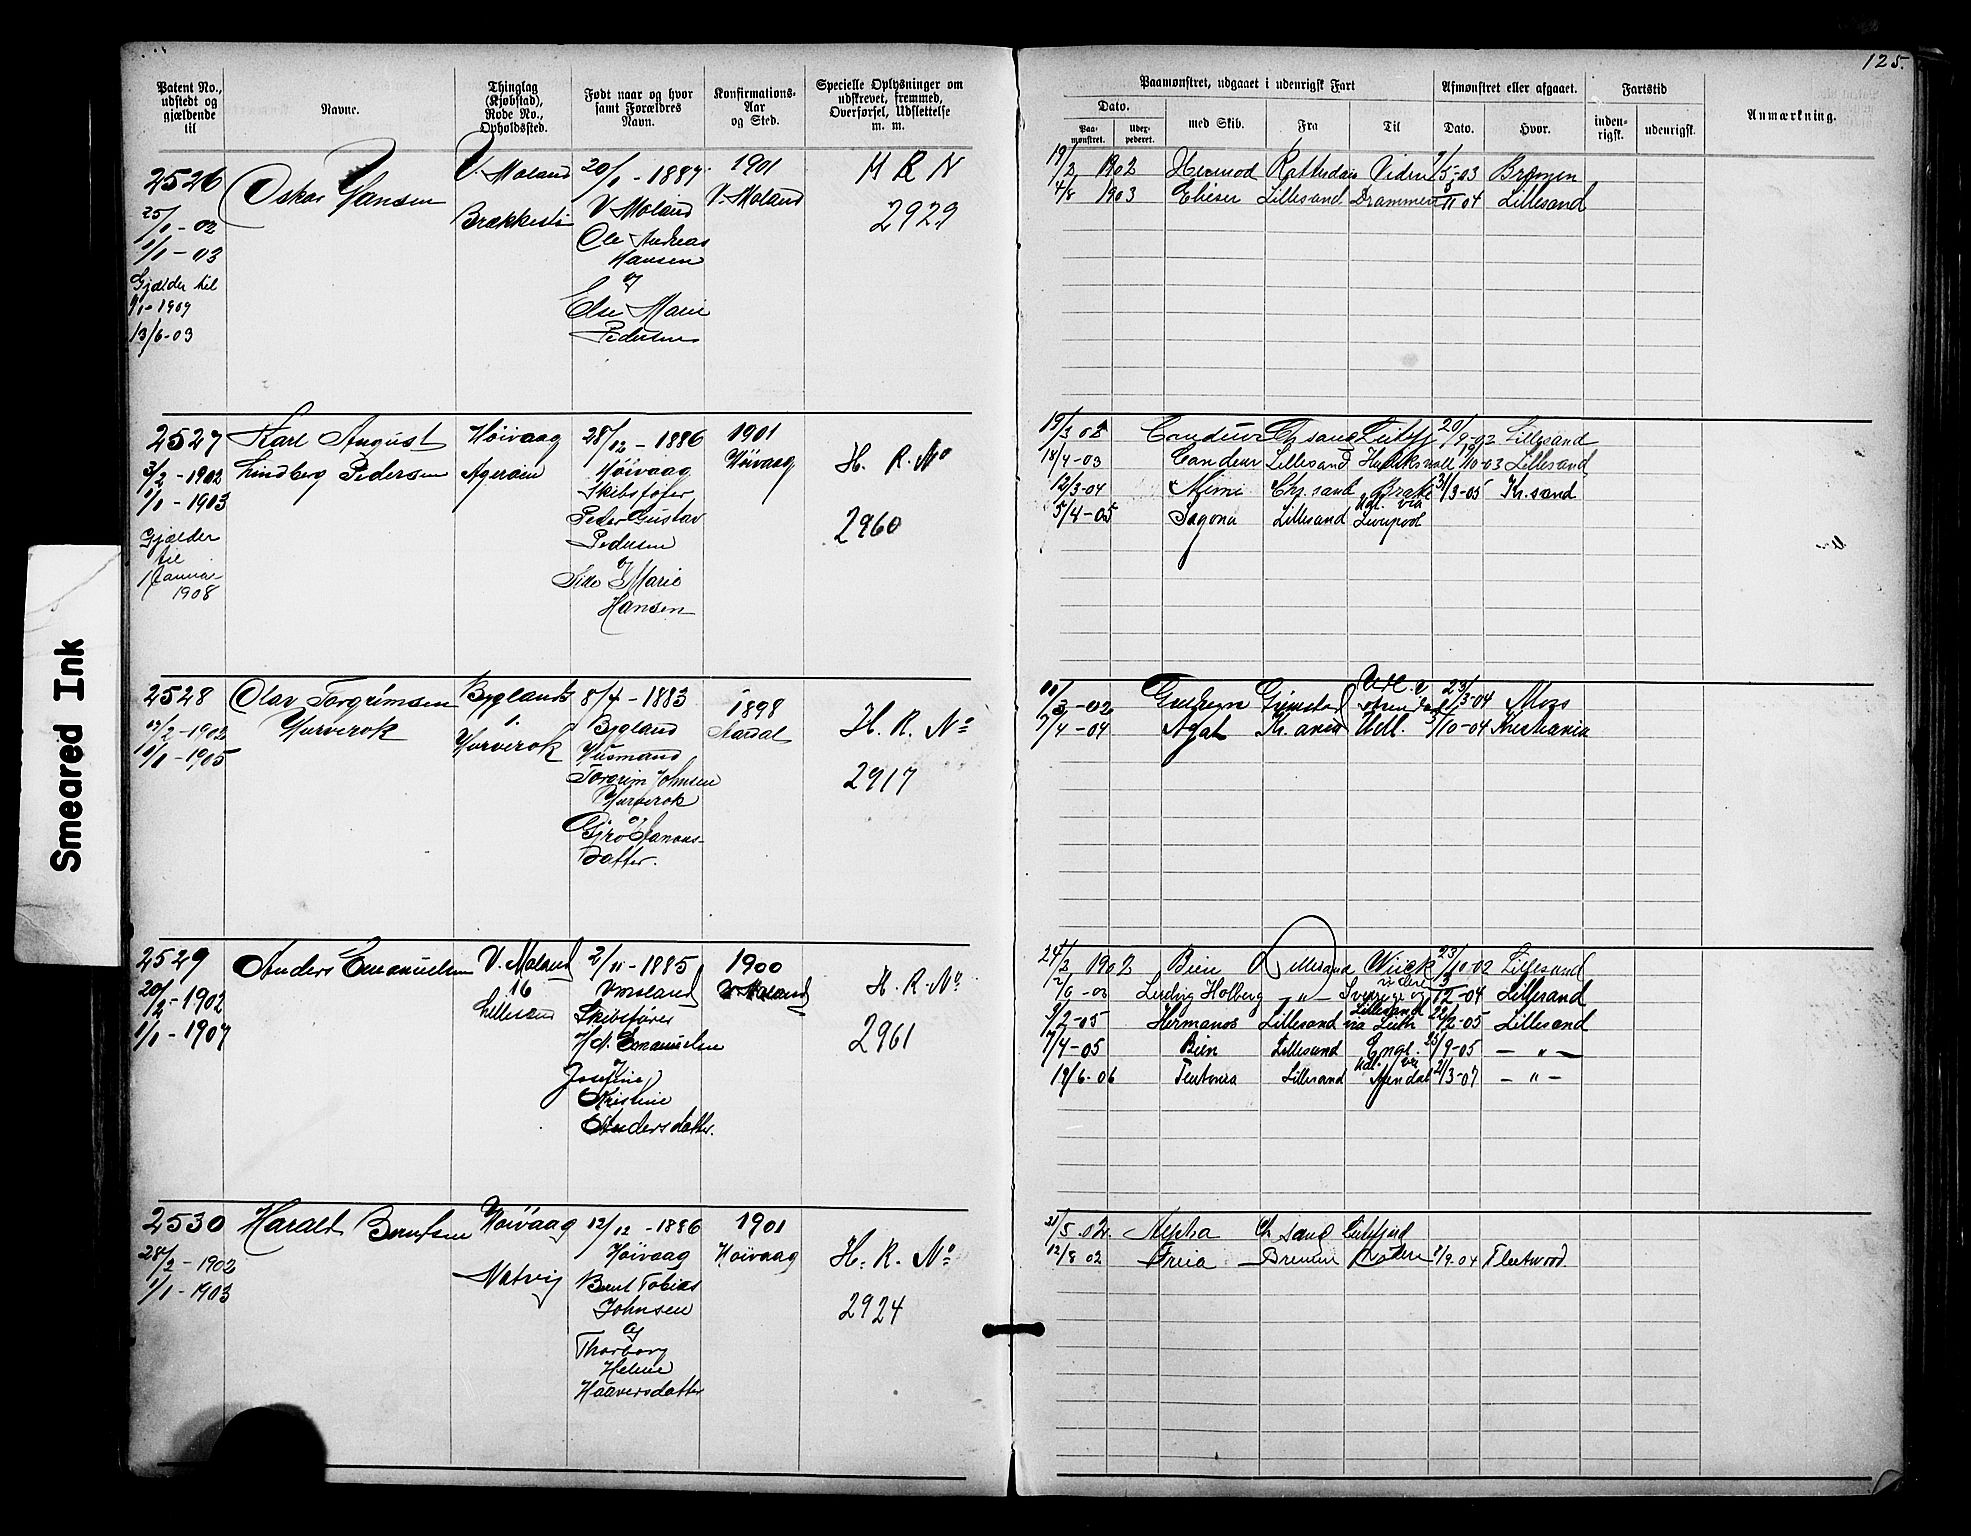 125.
Patent No., udstedt og gjældende til
Navne.
Thinglag (Kjøbstad), Rode No., Opholdssted.
Født naar og hvor samt Forældres Navn.
Konfirmations-Aar og Sted.
Specielle Oplysninger om udskrevet, fremmed, Overførsel, Udslettelse m. m.
Paamønstret, udgaaet i udenrigsk Fart
Dato.
Paa-mønstret.
Uder-pederet.
med Skib.
Fra
Til
Afmønstret eller afgaaet.
Dato.
Hvor.
Fartstid
inden-rigsk.
udenrigsk.
Anmærkning.
2526
25/1 - 02
1/1 - 03
Gjælder til
1/1 - 1907
13/6 - 03
Oskar Hansen
V. Moland
20/1 - 1887
V. Moland
Ole Andreas
Hansen
og
Else Marie
Pedersen
1901
V. Moland
H R N
2929
19/2 1902 Hermod
4/8 1903 Elieser Lillesand Drammen 04 Lillesand
Bremen
2527
3/2 - 1902
1/1 - 1903
Gjælder
til
1 Januar
1908
Karl August
Lindberg Pedersen
Høivaag
Agerøen
28/12 - 1886
Høivaag
Skibsfører
Peder Gustav
Pedersen
og
Marie
Hansen
1901
Høivaag
H. R. No
2960
19/3 02 Condeur Ch. sand 20/9 - 02 Lillesand
18/4 - 03 Condeur Lillesand /10 - 03 Lillesand
12/3 - 04 Mimi Chr. sand Brake 31/3 - 05 Kr. sand
5/4 - 05 Sagona Lillesand via Liverpool
2528
17/2 - 1902
1/1 - 1905
Olav Torgrimsen
Hurverok
Bygland
Hurverok
8/4 - 1883
Bygland
Husmand
Torgrim Johnsen
Hurverok
og
Gjro
Datter.
1898
Aardal
H. R. No
2917
/3 - 02 Grimstad /3 - 04 Moss
7/4 - 04 Agat Kr. ania Udl. /10 - 04 Kristiania
2529
20/2 - 1902
1/1 - 1907
Anders Emanuelsen
V. Moland
16
2/11 - 1885
V. Moland
Skibsfører
Emanuelsen
og
Josefine
Kristine
Andersdatter.
1900
V. Moland
H. R. No
2961
24/2 1902 Bien Lillesand Wiick 23/10 - 02 Lillesand
Ludvig Holberg — " — Sverige og 12 - 04 Lillesand
3/2 - 05 Hermanos Lillesand Lillesand via Leith 22/2 - 05 Lillesand
7/4 - 05 Bien Lillesand Engl. 25/9 - 05 — " —
19/6 - 06 Teutonia Lillesand Udl. via Arendal 21/3 - 07 — " —
2530
28/2 - 1902
1/1 - 1903
Harald Berntsen
Høivaag
Natvig
12/12 - 1886
Høivaag
Bernt Tobias
Johnsen
og
Thorborg
Helene
Haaversdatter
1901
Høivaag
H. R. No
2924
21/5 02 Alpha Ch. sand
12/8 02 Freia Bremen /9 - 04 Fleetwood.
Smeared Ink